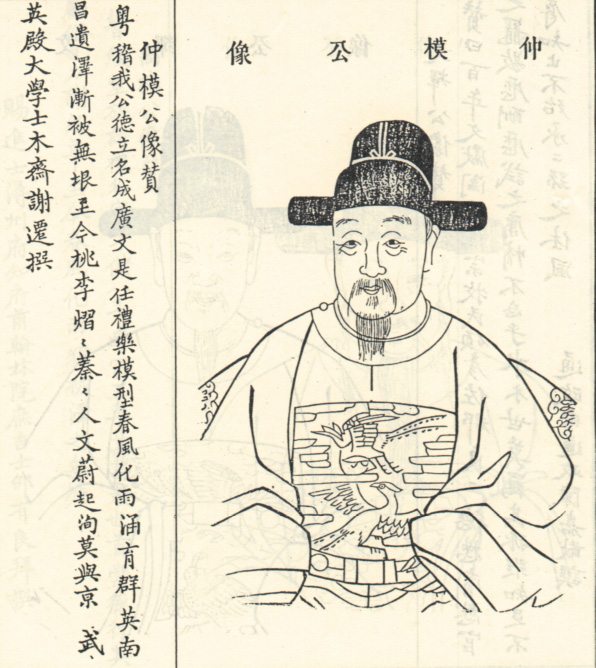 仲模公像
仲模公像賛
粤稽我公德立名成廣文是任禮樂模型春風化雨涵育群英南
昌遺澤漸被無垠至今桃李熠〻蓁〻人文蔚起洵莫與京 武
英殿大學士木齋謝遷撰